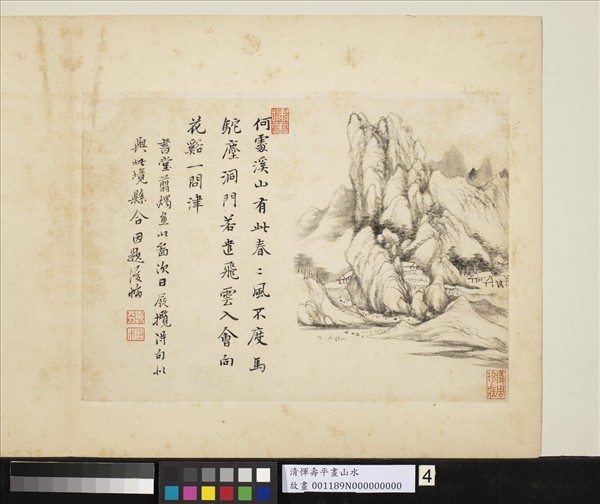 何處溪山有此春〻風不度馬
䭾塵洞門若遣飛雲入會向
花谿一問津
書堂剪燭畫此翁次日展攬得句似
與此境縣合因題後幅
清惲壽平畫山水
故畫 001189N000000000
4